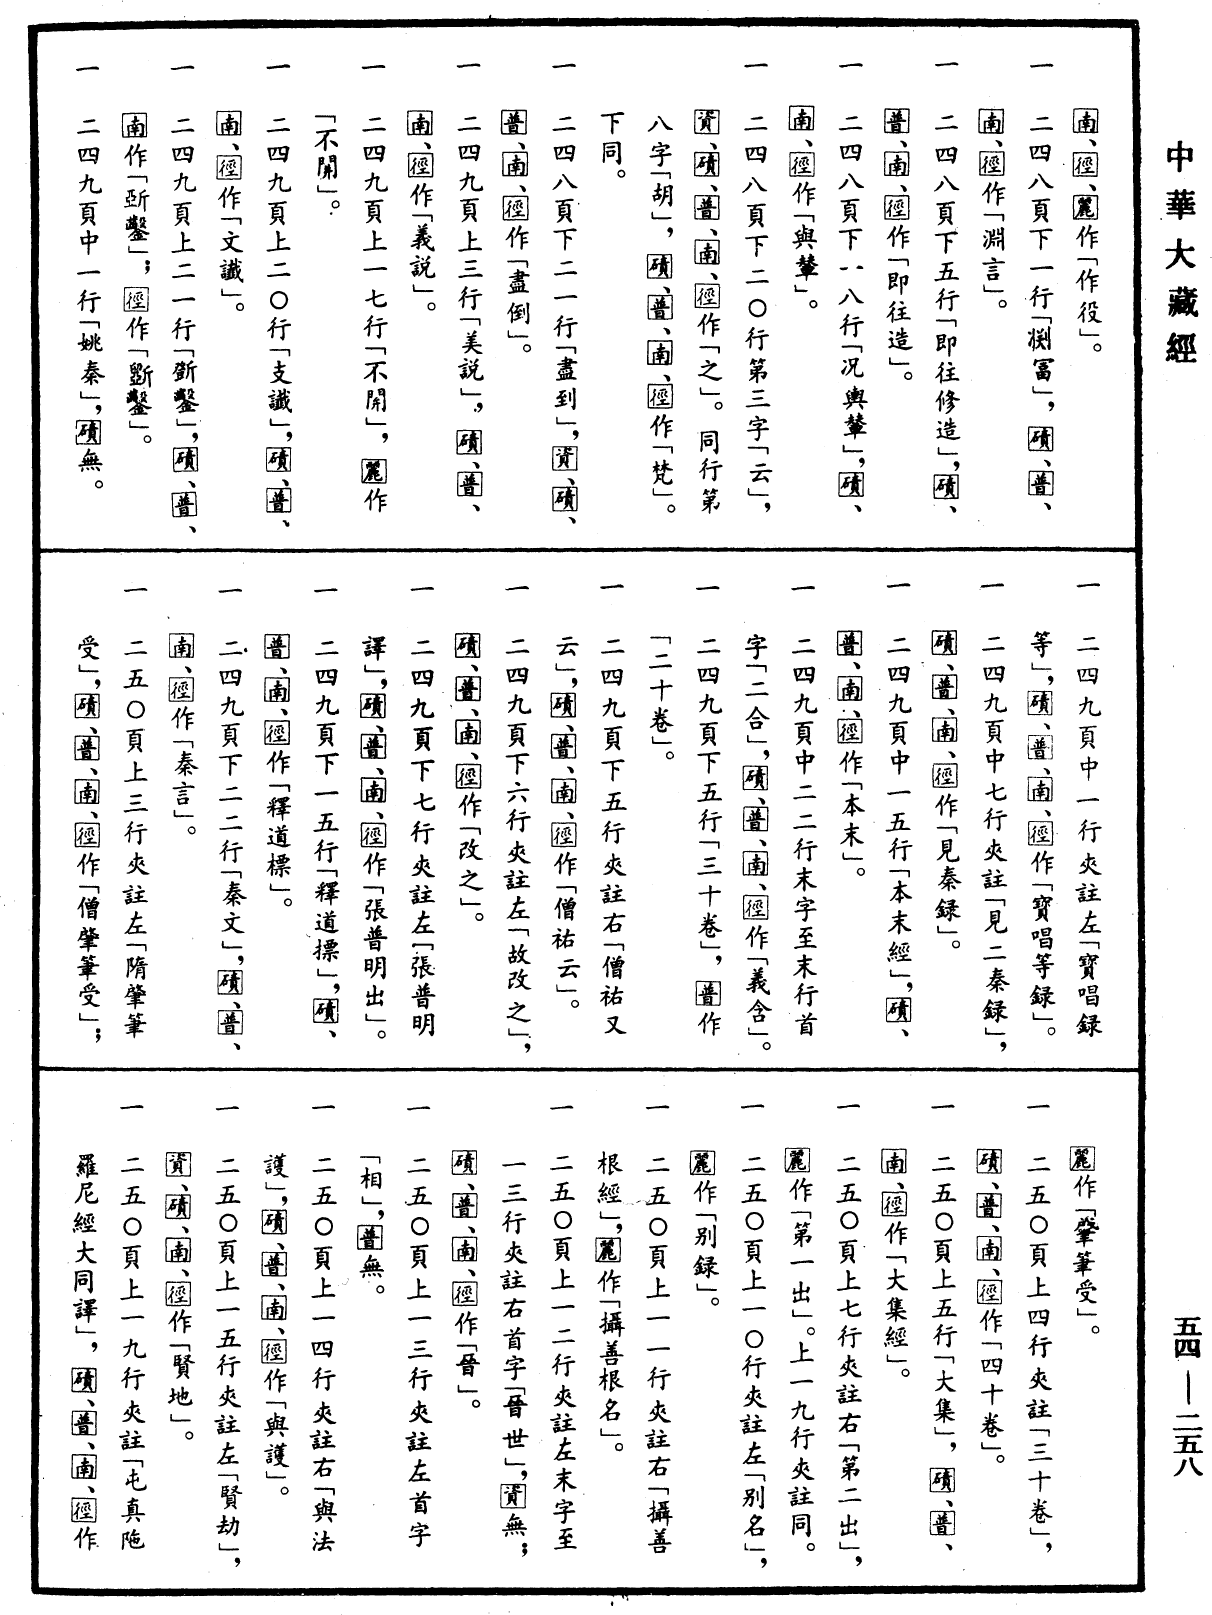 中華大藏經
南、徑、麗作「作役」。
一　二四八頁下一行「㴊富」，磧、普、
南、徑作「淵言」。
一　二四八頁下五行「即往修造」，磧、
普、南、徑作「即往造」。
一　二四八頁下一八行「况輿輦」，磧、
南、徑作「與輦」。
一　二四八頁下二〇行第三字「云」，
資、磧、普、南、徑作「之」。同行第
八字「胡」，磧、普、南、徑作「梵」。
下同。
一　二四八頁下二一行「盡到」，資、磧、
普、南、徑作「盡倒」。
一　二四九頁上三行「美説」，磧、普、
南、徑作「義説」。
一　二四九頁上一七行「不開」，麗作
「不閞」。
一　二四九頁上二〇行「支讖」，磧、普、
南、徑作「文讖」。
一　二四九頁上二一行「斲鑿」，磧、普、
南作「斵鑿」；徑作「斲鑿」。
一　二四九頁中一行「姚秦」，磧無。
一　二四九頁中一行夾註左「寶唱録
等」，磧、普、南、徑作「寶唱等録」。
一　二四九頁中七行夾註「見二秦録」，
磧、普、南、徑作「見秦録」。
一　二四九頁中一五行「本末經」，磧、
普、南、徑作「本末」。
一　二四九頁中二二行末字至末行首
字「二合」，磧、普、南、徑作「義含」。
一　二四九頁下五行「三十卷」，普作
「二十卷」。
一　二四九頁下五行夾註右「僧祐又
云」，磧、普、南、徑作「僧祐云」。
一　二四九頁下六行夾註左「故改之」，
磧、普、南、徑作「改之」。
一　二四九頁下七行夾註左「張普明
譯」，磧、普、南、徑作「張普明出」。
一　二四九頁下一五行「釋道摽」，磧、
普、南、徑作「釋道標」。
一　二四九頁下二二行「秦文」，磧、普、
南、徑作「秦言」。
一　二五〇頁上三行夾註左「隋肇筆
受」，磧、普、南、徑作「僧肇筆受」；
麗作「肇筆受」。
一　二五〇頁上四行夾註「三十卷」，
磧、普、南、徑作「四十卷」。
一　二五〇頁上五行「大集」，磧、普、
南、徑作「大集經」。
一　二五〇頁上七行夾註右「第二出」，
麗作「第一出」。上一九行夾註同。
一　二五〇頁上一〇行夾註左「别名」，
麗作「别録」。
一　二五〇頁上一一行夾註右「攝善
根經」，麗作「攝善根名」。
一　二五〇頁上一二行夾註左末字至
一三行夾註右首字「晉世」，資無；
磧、普、南、徑作「晉」。
一　二五〇頁上一三行夾註左首字
「相」，普無。
一　二五〇頁上一四行夾註右「與法
護」，磧、普、南、徑作「與護」。
一　二五〇頁上一五行夾註左「賢劫」，
資、磧、南、徑作「賢地」。
一　二五〇頁上一九行夾註「屯真陁
羅尼經大同譯」，磧、普、南、徑作
五四—二五八